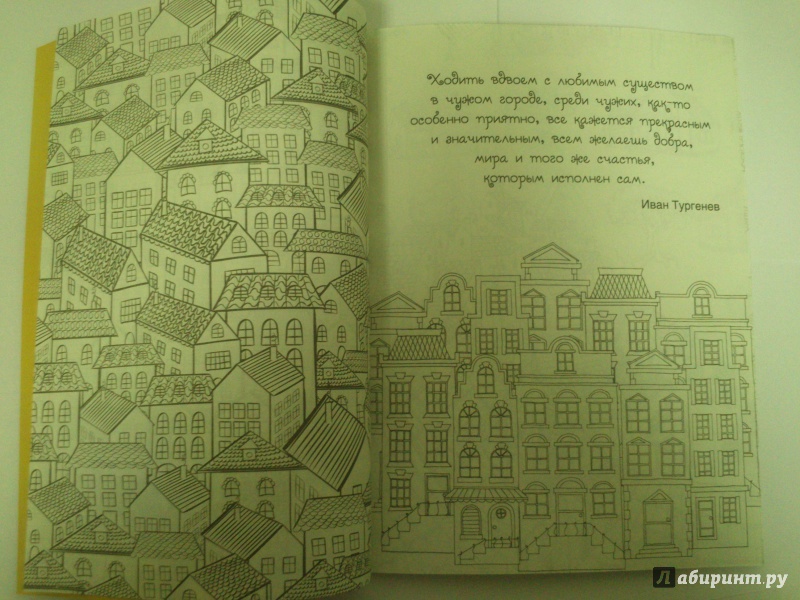 Ходить вдвоем с любимым существом
в чужом городе, среди чужих, как-то
особенно приятно, все кажется прекрасным
и значительным, всем желаешь добра,
мира и того же счастья,
которым исполнен сам.
Иван Тургенев
Лабиринт.ру